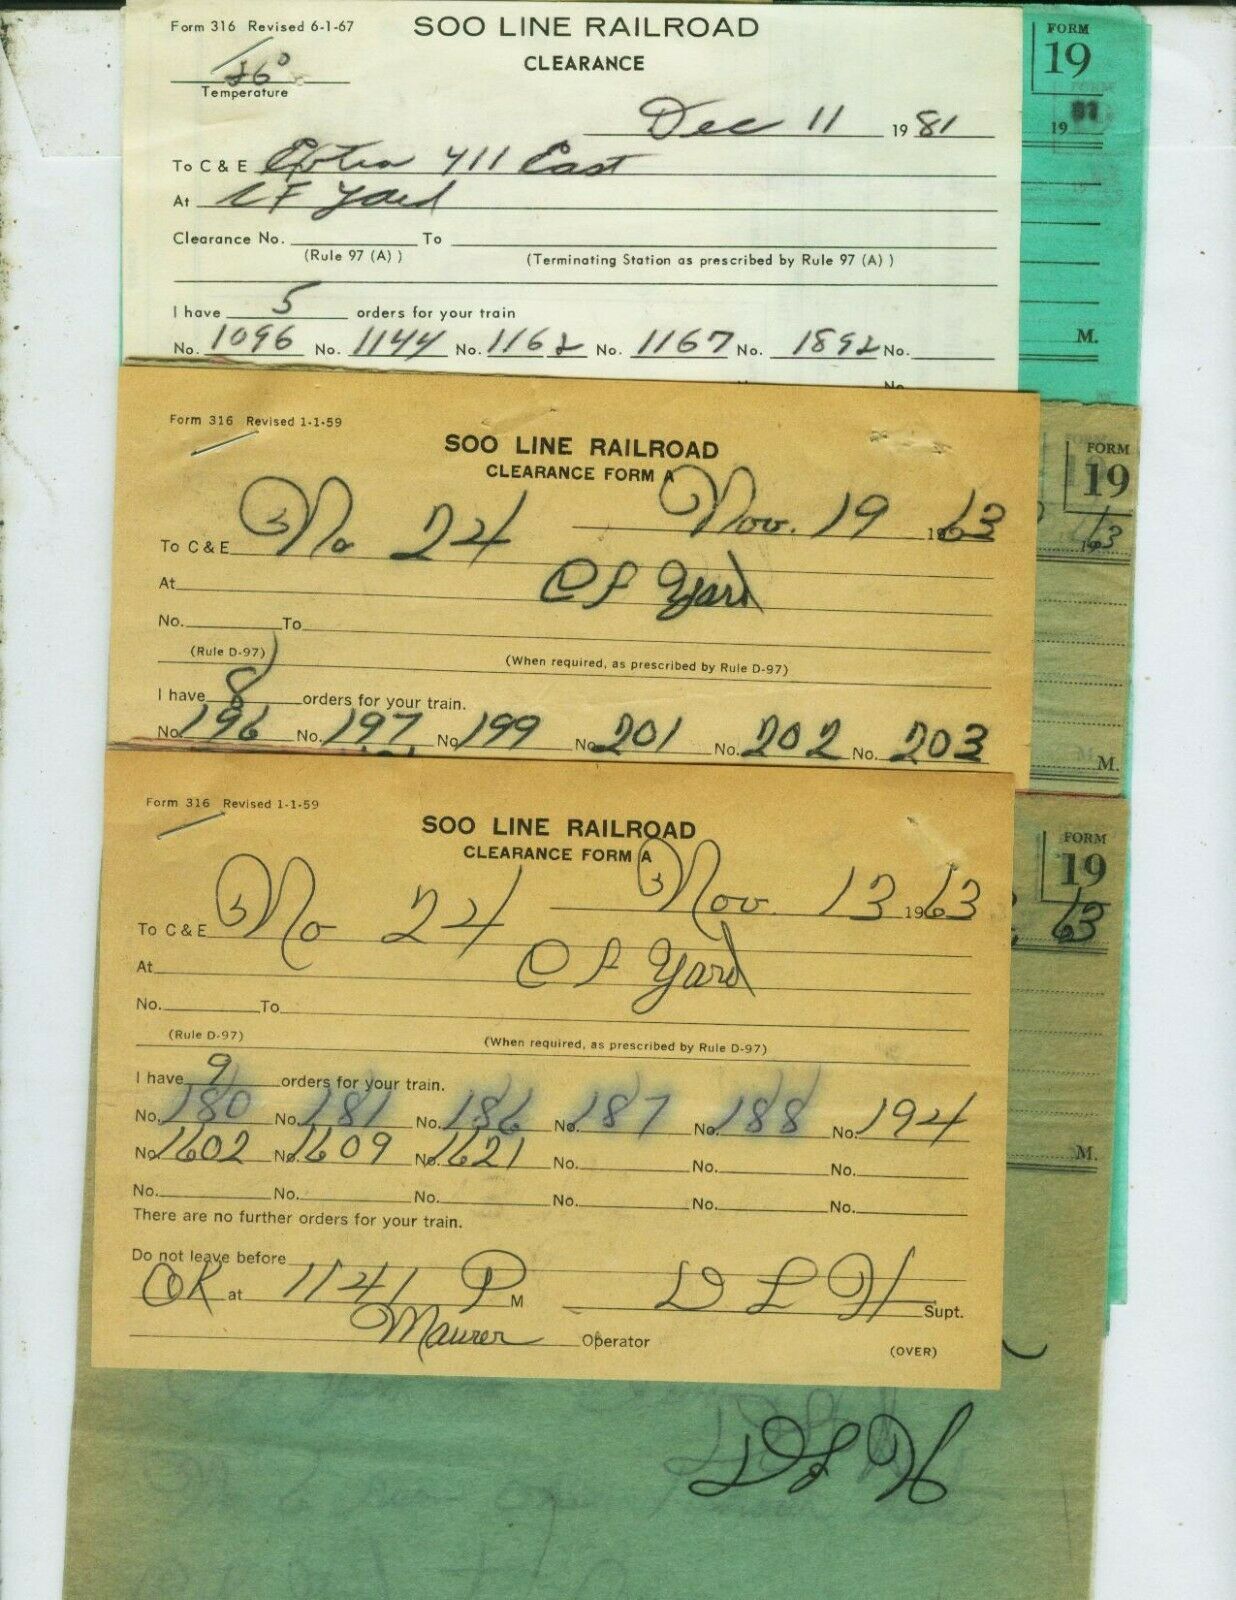 Form 316 Revised 6-1-67
SOO LINE RAILROAD
CLEARANCE
Temperature
Dec 11 1981
To C & E Extra 411 East
At CF Yard
Clearance No. To
(Rule 97 (A) ) (Terminating Station as prescribed by Rule 97 (A) )
I have 5 orders for your train
No. 1096 No. 1144 No. 1162 No. 1167 No. 1892 No.
No
FORM
19
19 81
M.
Form 316 Revised 1-1-59
SOO LINE RAILROAD
CLEARANCE FORM A
Nov. 19 1963
To C & E No 24
At CF Yard
No. To
(Rule D-97) (When required, as prescribed by Rule D-97)
I have 8 orders for your train.
No. 196 No. 197 No. 199 No. 201 No. 202 No. 203
FORM
19
1963
M.
Form 316 Revised 1-1-59
SOO LINE RAILROAD
CLEARANCE FORM A
Nov. 13 1963
To C & E No 24
At CF Yard
No. To
(Rule D-97) (When required, as prescribed by Rule D-97)
I have 9 orders for your train.
No. 180 No. 181 No. 186 No. 187 No. 188 No. 194
No. 1602 No. 1609 No. 1621 No. No. No.
No. No. No. No. No. No.
There are no further orders for your train.
Do not leave before
OK at 1141 P M DLH Supt.
Maurer Operator
(OVER)
FORM
19
63
M.
DLH